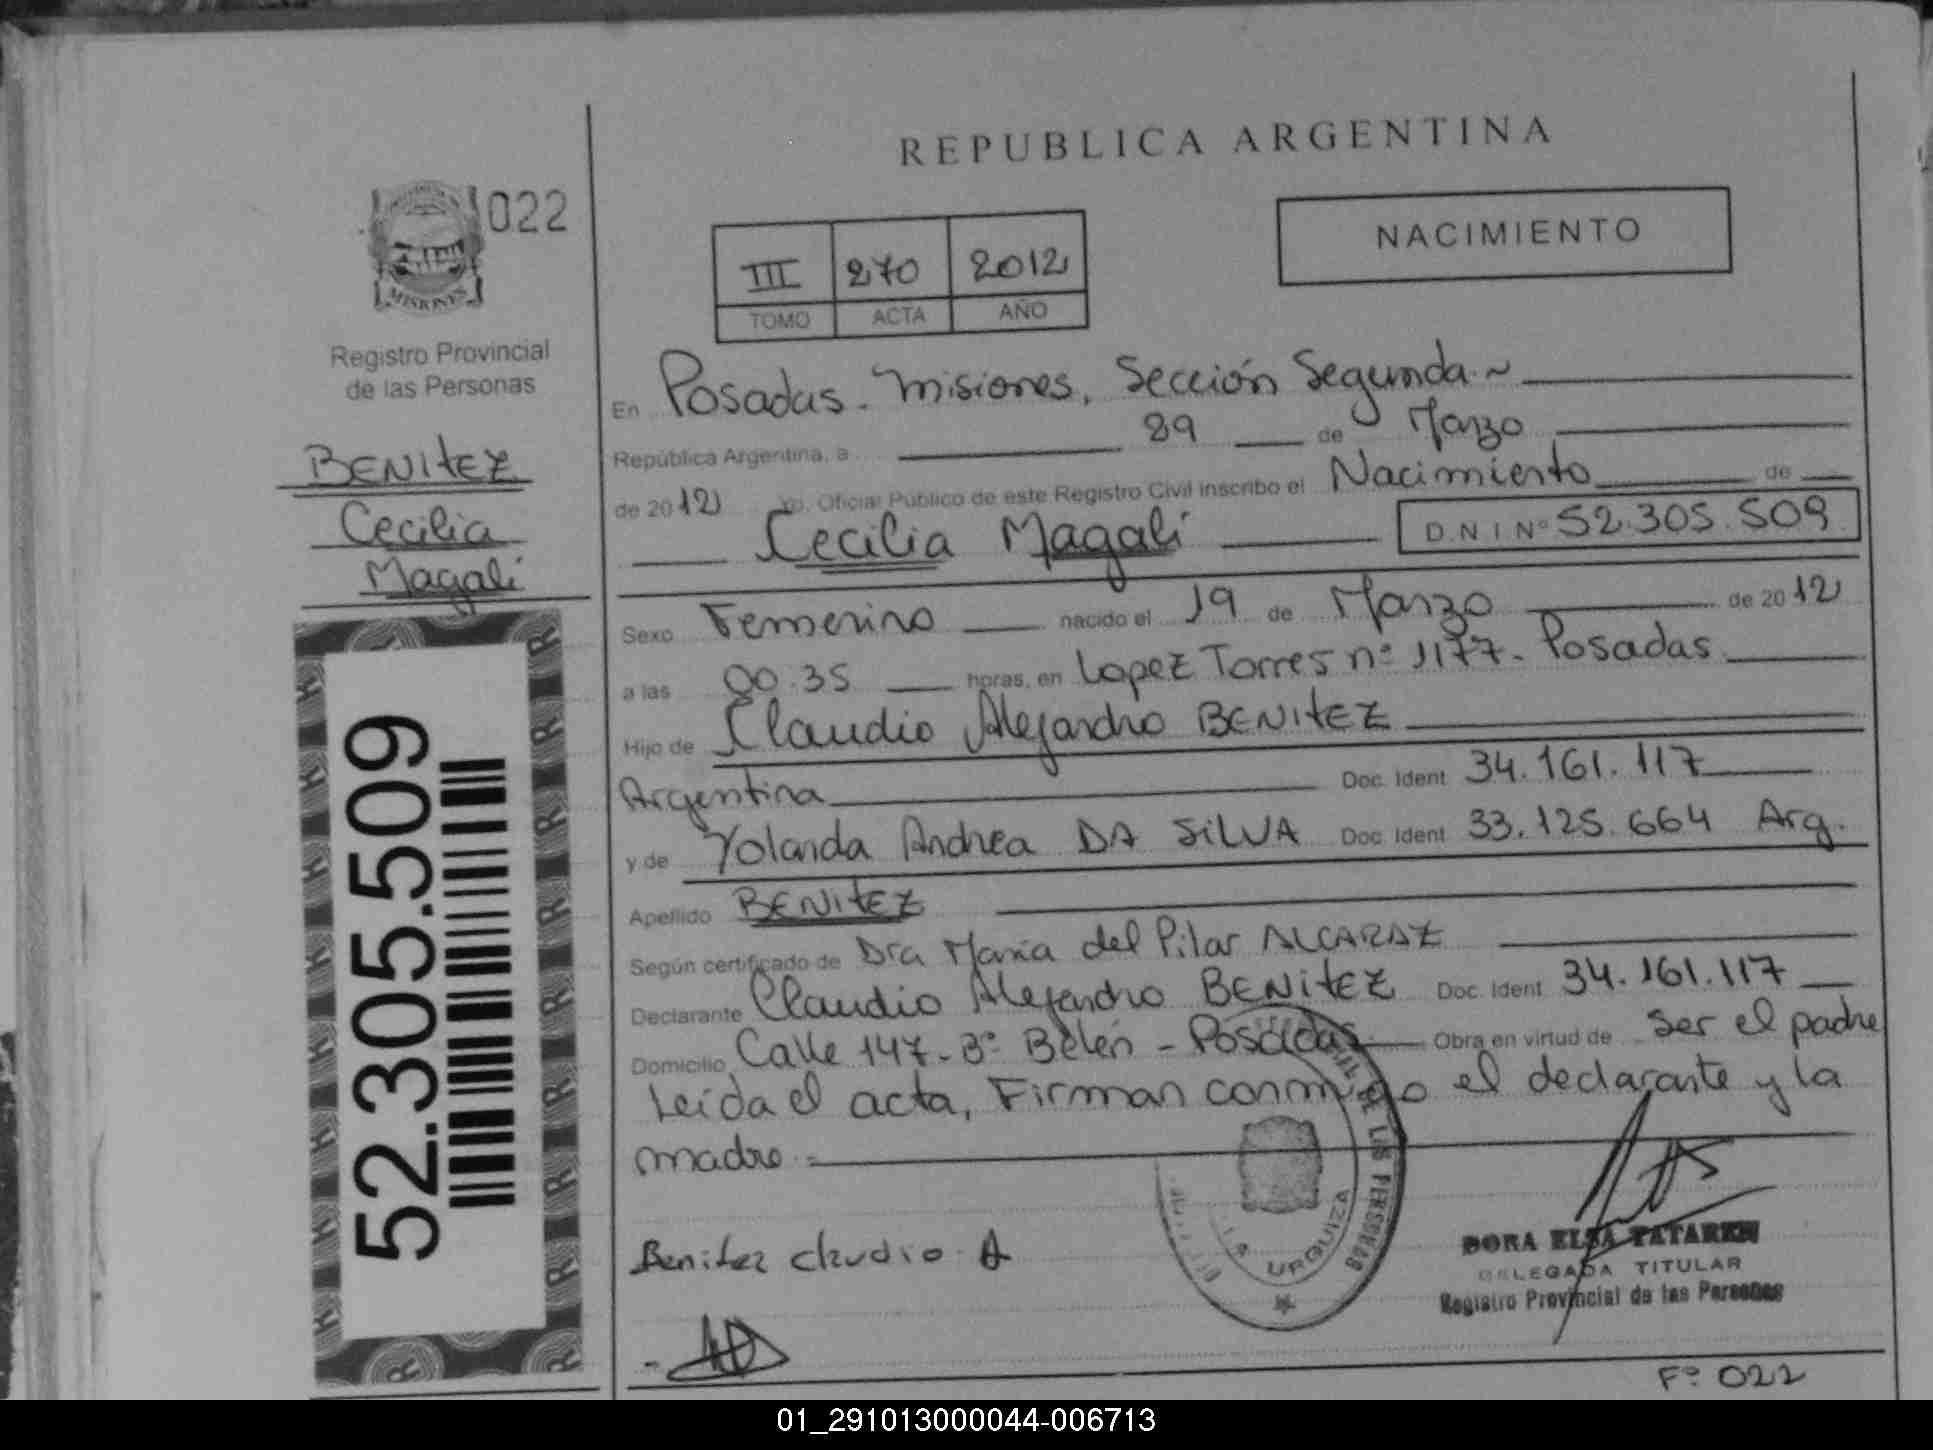 REPUBLICA ARGENTINA
022
MISIONES
Registro Provincial
de las Personas
BENITEZ
Cecilia
Magalí
52.305.509
NACIMIENTO
III 270 2012
TOMO ACTA AÑO
En Posadas - Misiones, Sección Segunda
República Argentina, a 29 de Marzo
de 2012 Yo, Oficial Público de este Registro Civil inscribo el Nacimiento de
Cecilia Magalí D.N.I Nº 52.305.509
Sexo Femenino nacido el 19 de Marzo de 2012
a las 00.35 horas, en Lopez Torres nº 1177 - Posadas
Hijo de Claudio Alejandro BENITEZ
Argentina Doc. Ident 34.161.117
y de Yolanda Andrea DA SILVA Doc. Ident 33.125.664 Arg.
Apellido BENITEZ
Según certificado de Dra María del Pilar ALCARAZ
Declarante Claudio Alejandro BENITEZ Doc. Ident 34.161.117
Domicilio Calle 147 - Bº Belén - Posadas Obra en virtud de Ser el padre
Leída el acta, Firman conmigo el declarante y la
madre.
Benitez claudio A
DE LAS PERSONAS
URQUIZA
DORA ELSA TATAREN
DELEGADA TITULAR
Registro Provincial de las Personas
Fº 022
01_291013000044-006713